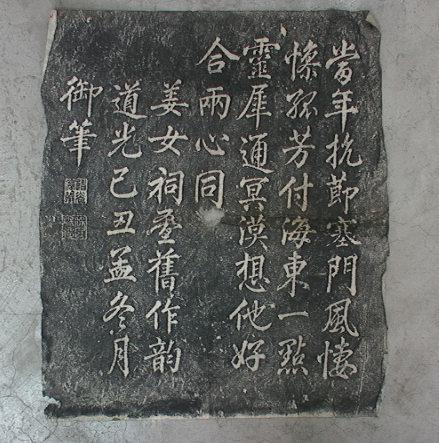 當年抗節塞門風悽
孤芳付海東一點
靈犀通冥漠想他好
合兩心同
姜女祠疊舊作韵
道光己丑孟冬月
御筆